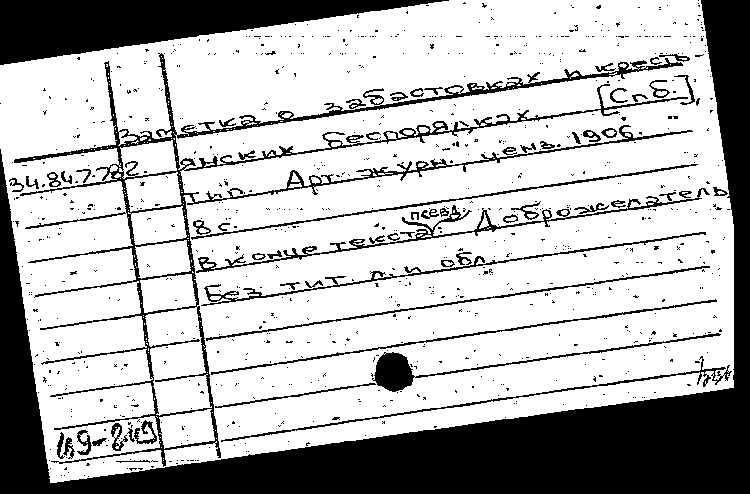 Заметка о забастовках и кресть
янских беспорядках. [Спб.],
34.84.7.782.
тип. "Арт. журн.", ценз. 1906.
8 с.
В конце текста псевд.: Доброжелатель
Без тит. л. и обл.